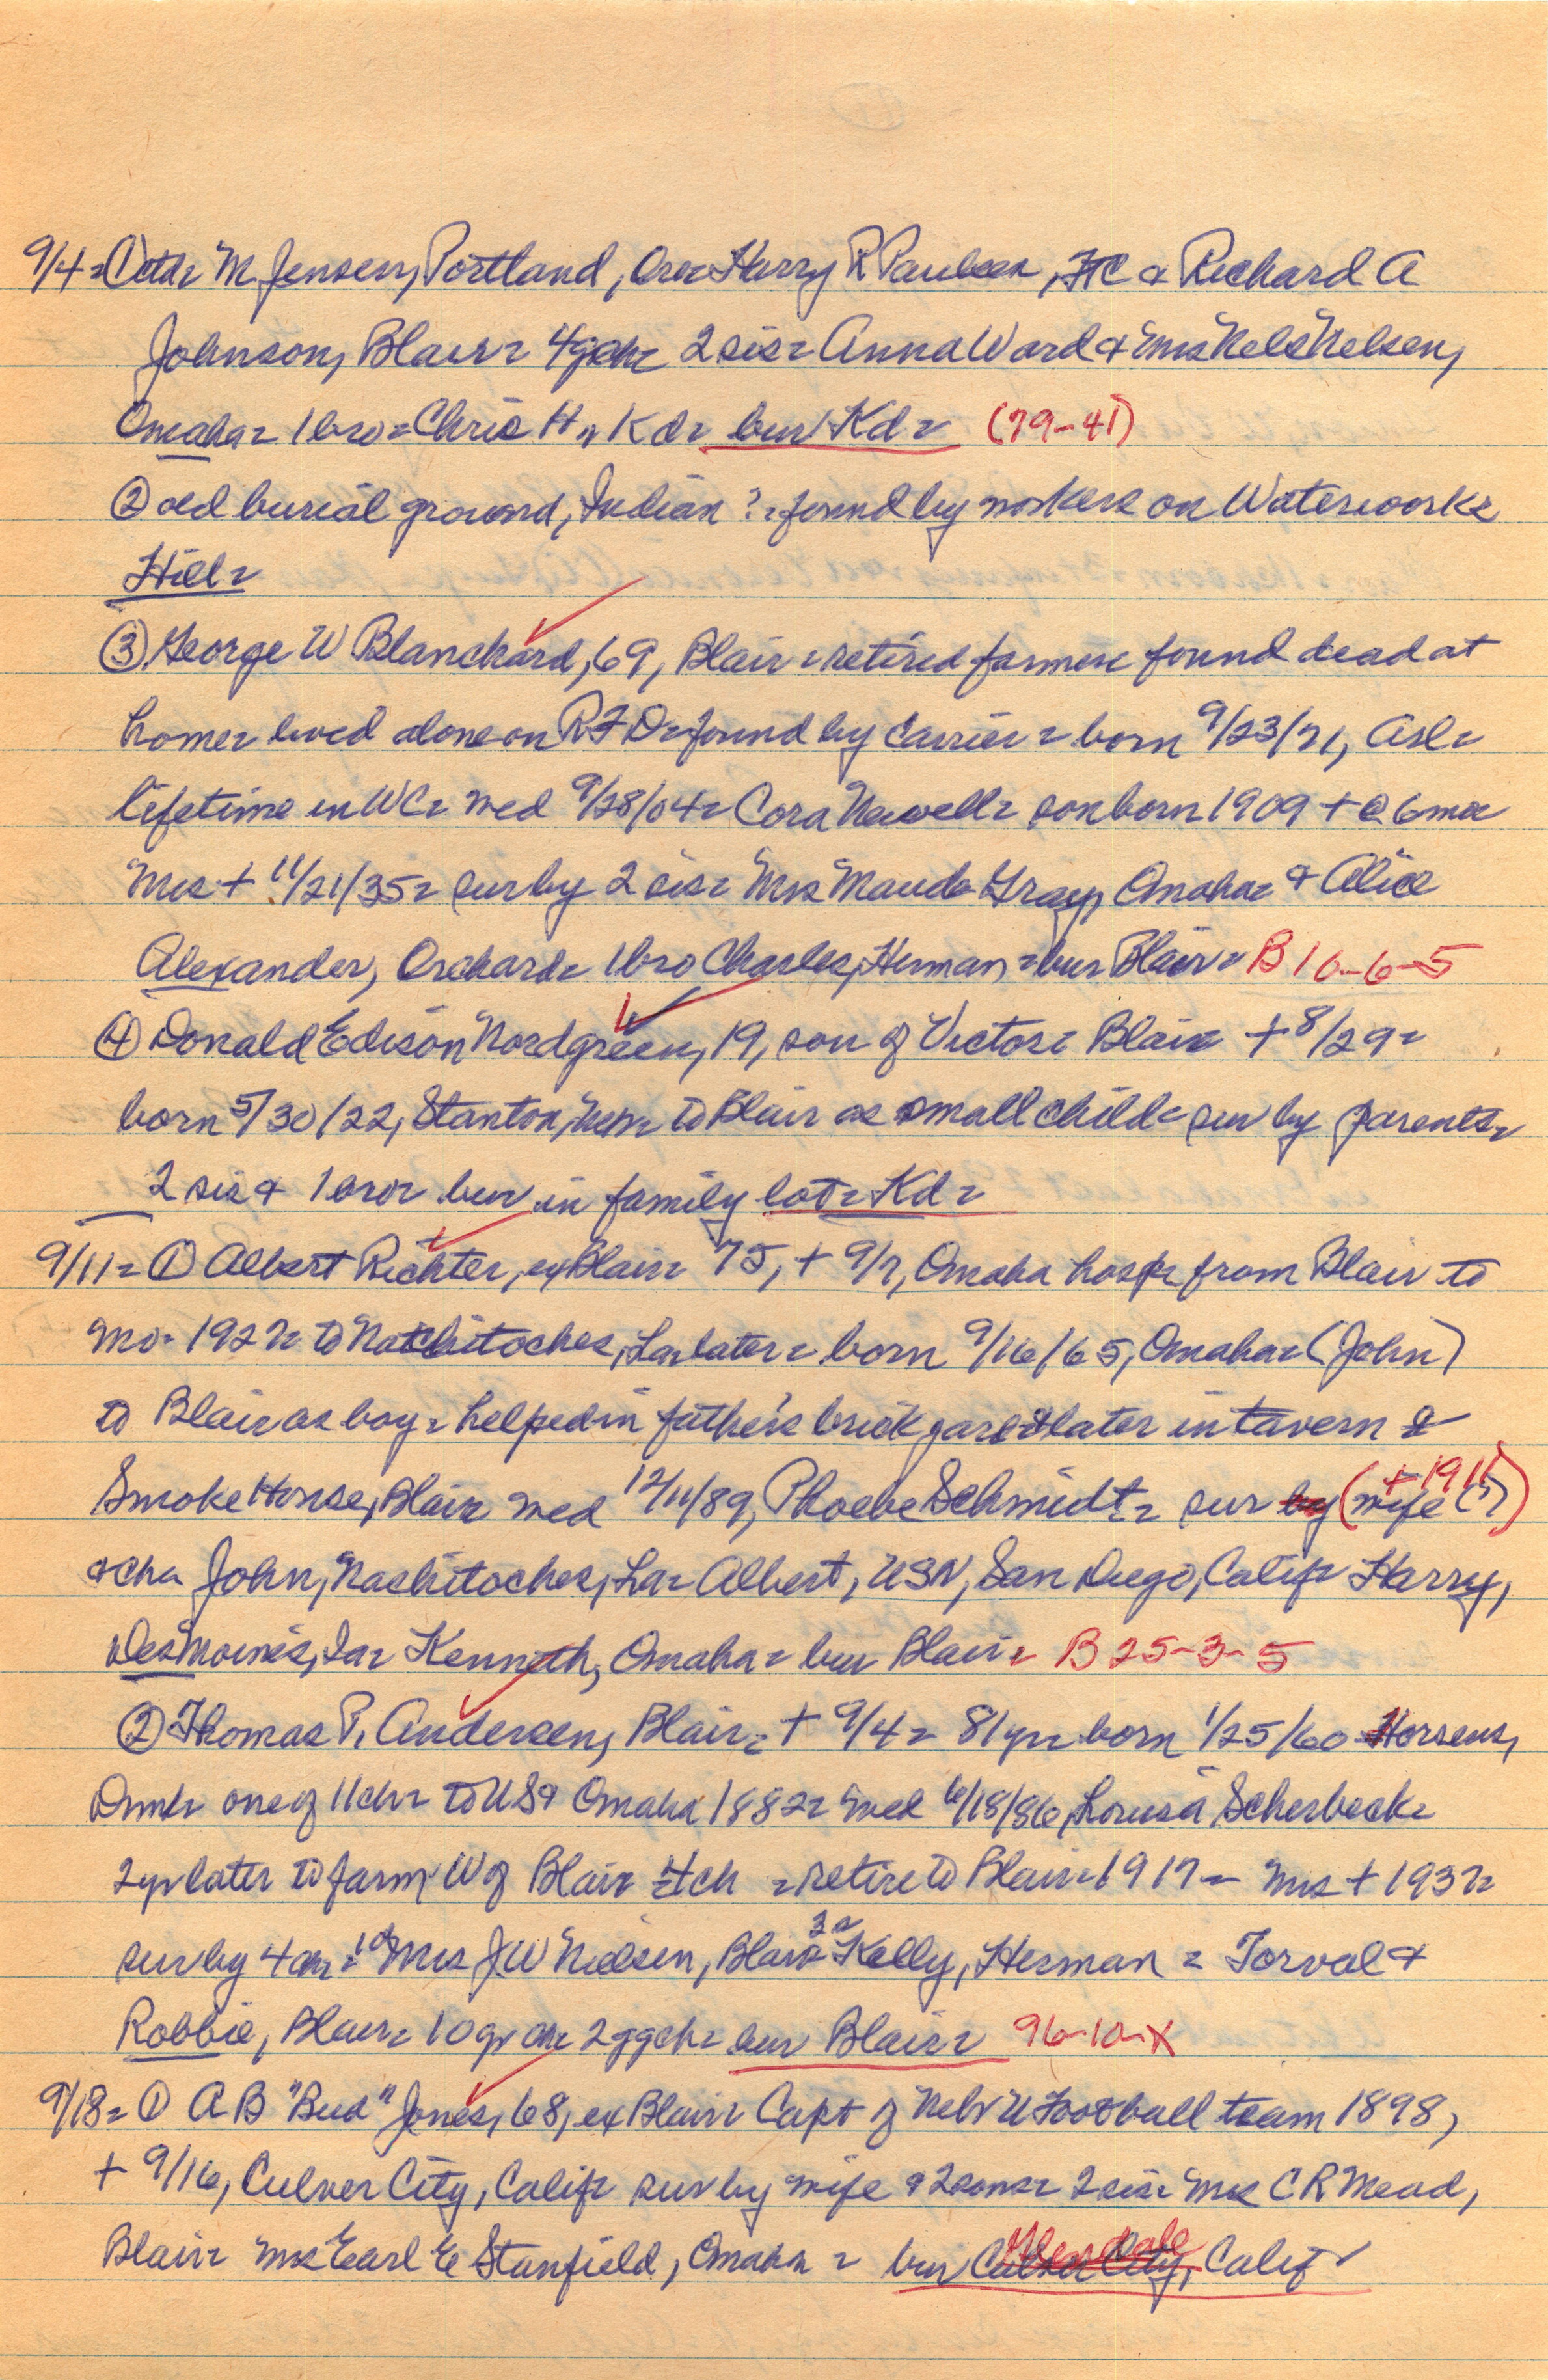 9/4= Otto M Jensen, Portland, Ore= Harry R Paulsen, FC & Richard A
Johnson, Blair= 4 gch= 2 sis= Anna Ward & Mrs Nels Nelsen,
Omaha= 1 bro= Chris H., Kd= bur Kd= (79-41)
② old burial ground, Indian?= found by workers on Waterworks
Hill=
③ George W Blanchard, 69, Blair= retired farmer found dead at
home= lived alone on RFD= found by carrier= born 9/23/71,
lifetime in WC= med 9/28/04= Cora Newell= son born 1909 + @ 6 mo=
Mrs + 11/21/35= sur by 2 sis= Mrs Maude Gray, Omaha= & Alice
Alexander, Orchard= 1 bro Charles, Herman= bur Blair= B 16-6-5
④ Donald Edison Nordgreen, 19, son of Victor= Blair + 8/29=
born 5/30/22, Stanton, Neb= to Blair as small child= sur by parents=
2 sis & 1 bro= bur in family lot= Kd=
9/11= ① Albert Richter, ex Blair= 75, + 9/7, Omaha hosp= from Blair to
Mo= 1927= to Natchitoches, La= later= born 9/16/65, Omaha= (John)
to Blair as boy= helped in father's brick yard & later in tavern &
Smoke House, Blair= med 12/11/89, Phoebe Schmidt= sur by (wife (?) + 1915)
& ch= John, Nachitoches, La= Albert, USN, San Diego, Calif= Harry,
Des Moines, Ia= Kenneth, Omaha= bur Blair= B 25-3-5
② Thomas P. Andersen, Blair= + 9/4= 81 yr= born 1/25/60 Horsens,
Dnmk= one of 11 ch= to US & Omaha 1882= med 6/18/86, Lousia Scherbeck=
2 yr later to farm W of Blair= 4 ch= retire to Blair= 1917= Mrs + 1937=
sur by 4 ch= 1 da Mrs J.W Nielsen, Blair= 3 s= Kelly, Herman= Torval &
Robbie, Blair= 10 gr ch= 2 ggch= bur Blair= 96-10-X
9/18= ① A B "Bud" Jones, 68, ex Blair= Capt of Neb= U Football team 1898,
+ 9/16, Culver City, Calif= sur by wife & 2 sons= 2 sis= Mrs C R Mead,
Blair= Mrs Earl E Stanfield, Omaha= bur Culver City, Glendale Calif=